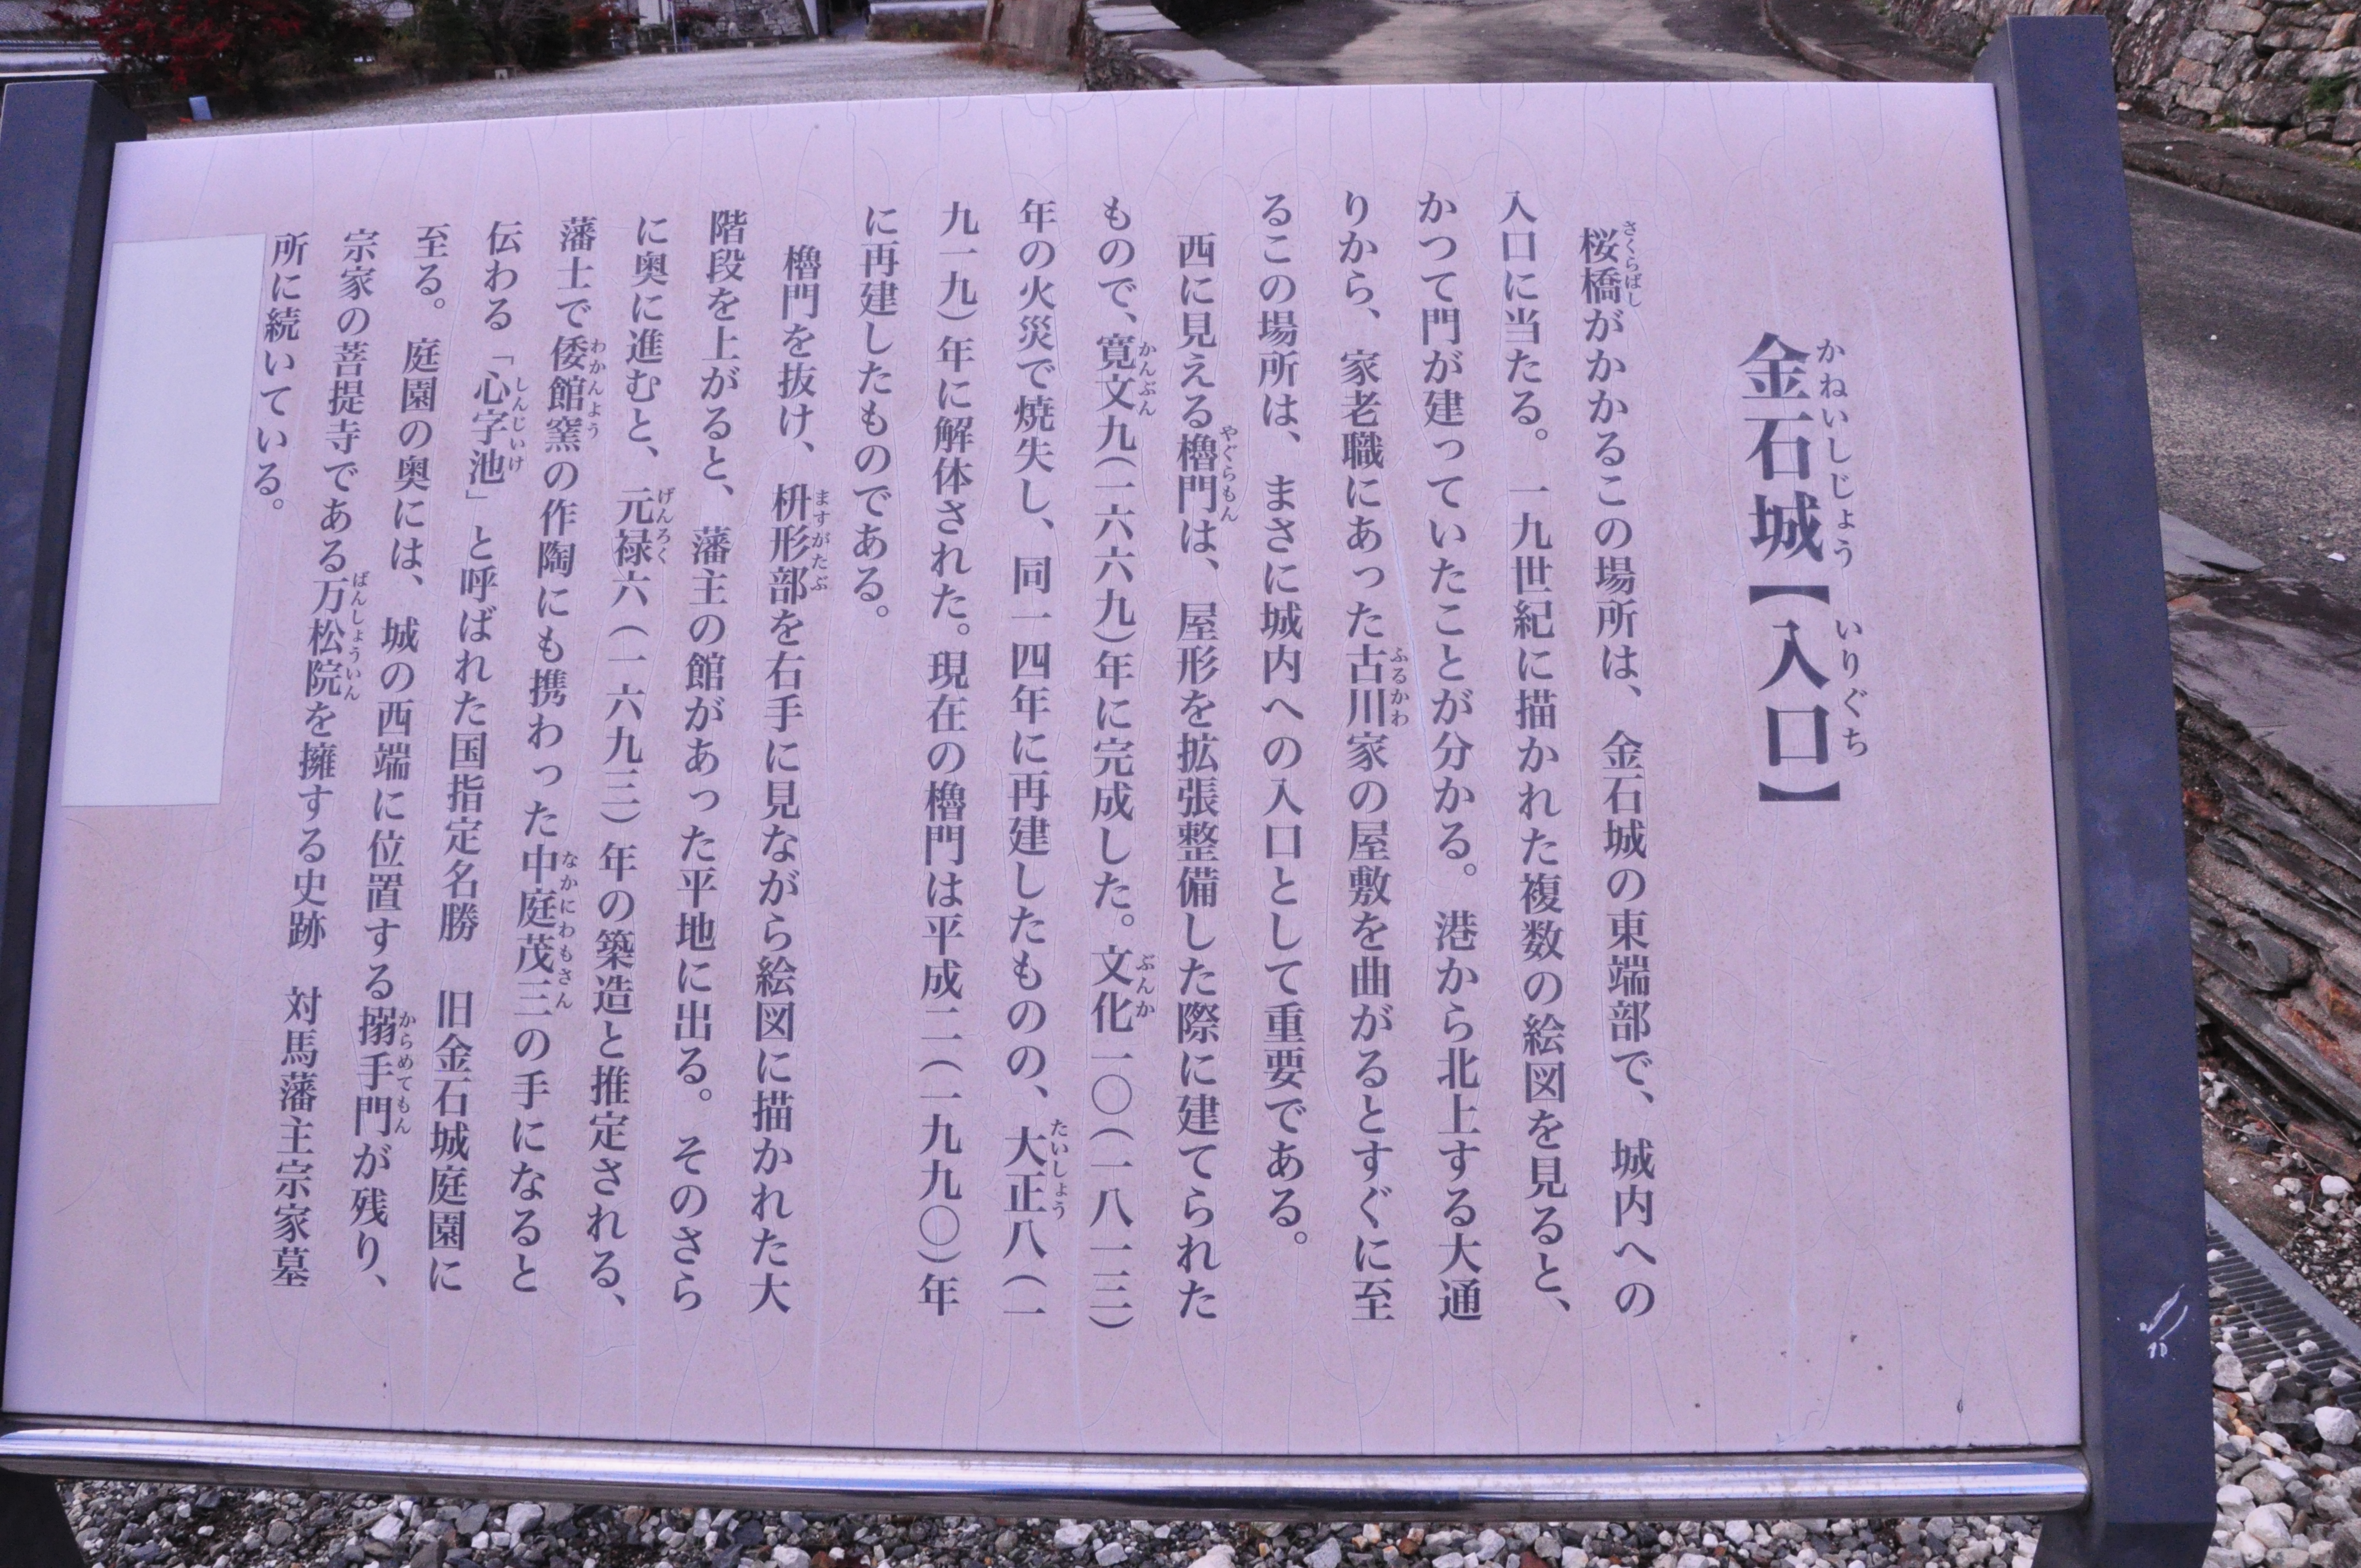 金石城【入口】
かねいしじょう いりぐち
桜橋がかかるこの場所は、金石城の東端部で、城内への
さくらばし
入口に当たる。一九世紀に描かれた複数の絵図を見ると、
かつて門が建っていたことが分かる。港から北上する大通
りから、家老職にあった古川家の屋敷を曲がるとすぐに至
ふるかわ
るこの場所は、まさに城内への入口として重要である。
西に見える櫓門は、屋形を拡張整備した際に建てられた
やぐらもん
もので、寛文九(一六六九)年に完成した。文化一〇(一八一三)
かんぶん ぶんか
年の火災で焼失し、同一四年に再建したものの、大正八(一
たいしょう
九一九)年に解体された。現在の櫓門は平成二(一九九〇)年
に再建したものである。
櫓門を抜け、枡形部を右手に見ながら絵図に描かれた大
ますがたぶ
階段を上がると、藩主の館があった平地に出る。そのさら
に奥に進むと、元禄六(一六九三)年の築造と推定される、
げんろく
藩士で倭館窯の作陶にも携わった中庭茂三の手になると
わかんよう なかにわもさん
伝わる「心字池」と呼ばれた国指定名勝 旧金石城庭園に
しんじいけ
至る。庭園の奥には、城の西端に位置する搦手門が残り、
からめてもん
宗家の菩提寺である万松院を擁する史跡 対馬藩主宗家墓
ばんしょういん
所に続いている。